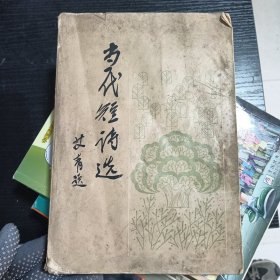 当代短诗选
艾青题